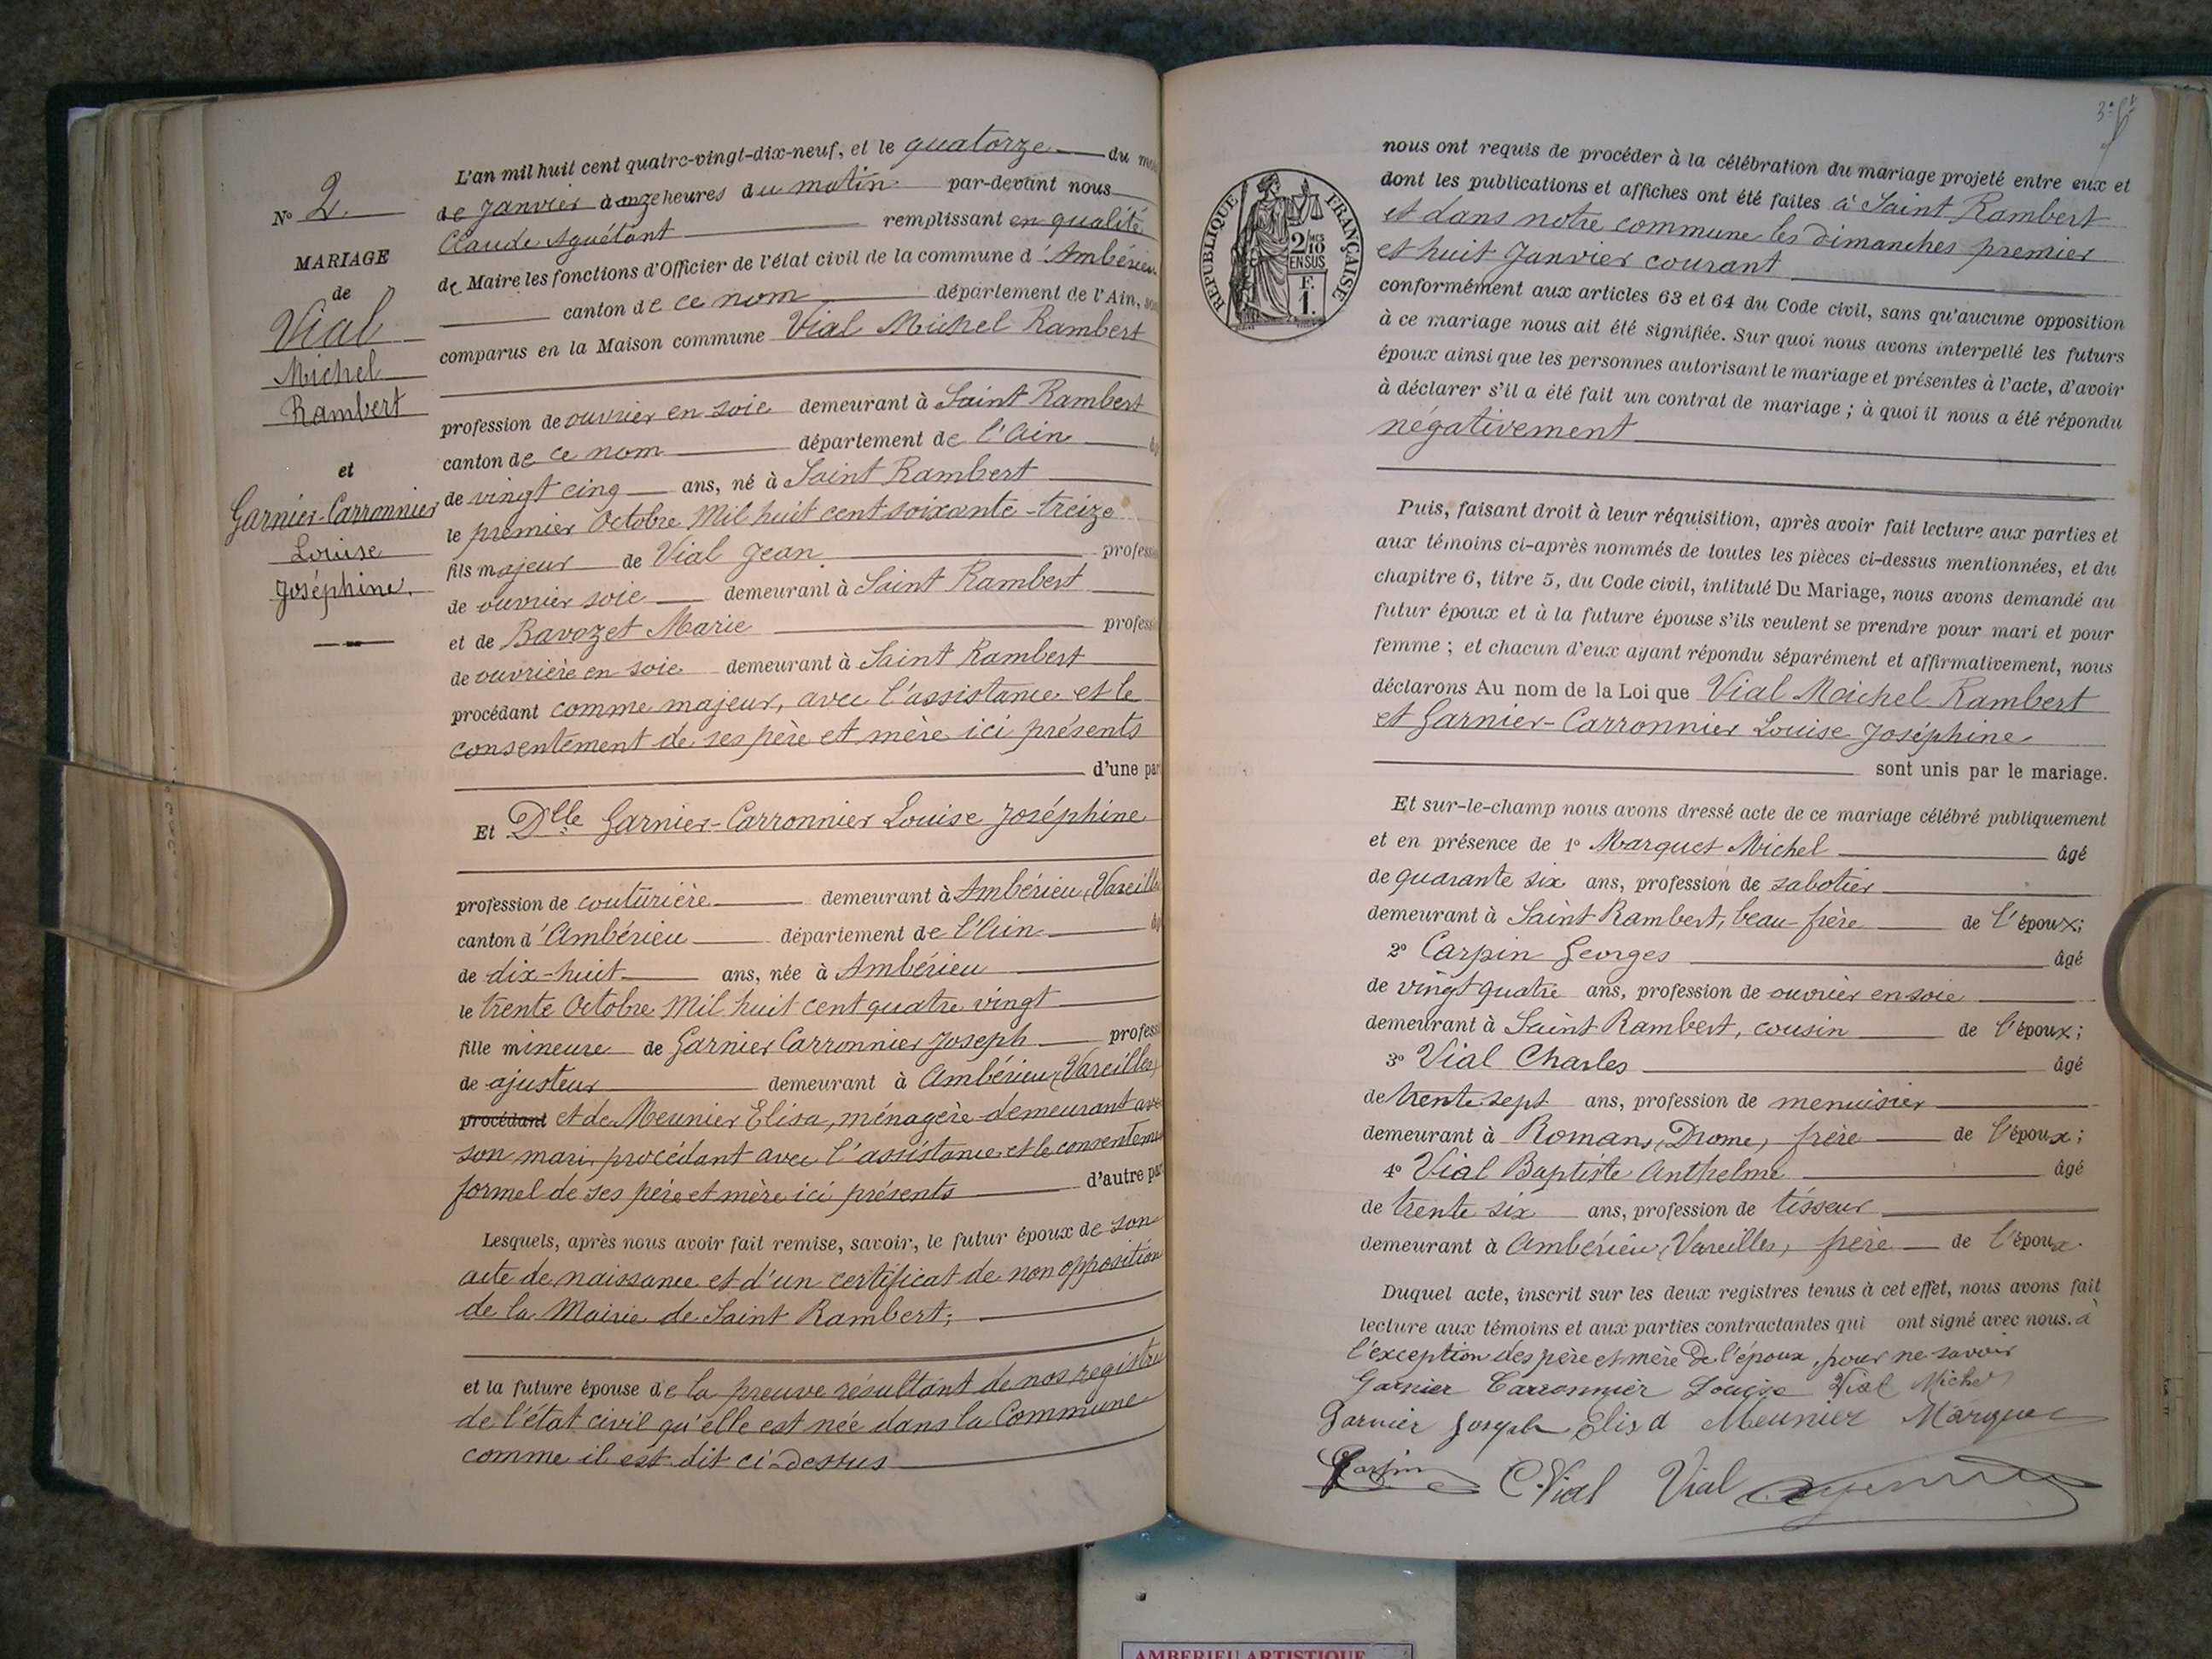 N° 2
MARIAGE
de
Vial
Michel
Rambert
et
Garnier-Carronnier
Louise
Joséphine.
L'an mil huit cent quatre-vingt-dix-neuf, et le quatorze du
de Janvier à onze heures du matin par-devant nous
Claude Aguétant remplissant en qualité
de Maire les fonctions d'Officier de l'état civil de la commune d'Ambérieu
canton de ce nom département de l'Ain,
comparus en la Maison commune Vial Michel Rambert
profession de ouvrier en soie demeurant à Saint Rambert
canton de ce nom département de l'Ain
de vingt cinq ans, né à Saint Rambert
le premier Octobre Mil huit cent soixante-treize
fils majeur de Vial Jean
de ouvrier soie demeurant à Saint Rambert
et de Ravozet Marie
de ouvrière en soie demeurant à Saint Rambert
procédant comme majeur, avec l'assistance et le
consentement de ses père et mère ici présents
d'une par
Et Dlle Garnier-Carronnier Louise Joséphine
profession de couturière demeurant à Ambérieu, Vareilles
canton d'Ambérieu département de l'Ain
de dix-huit ans, née à Ambérieu
le trente Octobre Mil huit cent quatre vingt
fille mineure de Garnier Carronnier Joseph
de ajusteur demeurant à Ambérieu (Vareilles)
procédant et de Meunier Elisa, ménagère demeurant avec
son mari, procédant avec l'assistance et le consentement
formel de ses père et mère ici présents d'autre par
Lesquels, après nous avoir fait remise, savoir, le futur époux de son
acte de naissance et d'un certificat de non opposition
de la Mairie de Saint Rambert;
et la future épouse de la preuve résultant de nos registre
de l'état civil qu'elle est née dans la Commune
comme il est dit ci-dessus
RÉPUBLIQUE FRANÇAISE
2/10 EN SUS
F. 1.
nous ont requis de procéder à la célébration du mariage projeté entre eux et
dont les publications et affiches ont été faites à Saint Rambert
et dans notre commune les dimanches premier
et huit Janvier courant
conformément aux articles 63 et 64 du Code civil, sans qu'aucune opposition
à ce mariage nous ait été signifiée. Sur quoi nous avons interpellé les futurs
époux ainsi que les personnes autorisant le mariage et présentes à l'acte, d'avoir
à déclarer s'il a été fait un contrat de mariage; à quoi il nous a été répondu
négativement
Puis, faisant droit à leur réquisition, après avoir fait lecture aux parties et
aux témoins ci-après nommés de toutes les pièces ci-dessus mentionnées, et du
chapitre 6, titre 5, du Code civil, intitulé Du Mariage, nous avons demandé au
futur époux et à la future épouse s'ils veulent se prendre pour mari et pour
femme; et chacun d'eux ayant répondu séparément et affirmativement, nous
déclarons Au nom de la Loi que Vial Michel Rambert
et Garnier-Carronnier Louise Joséphine
sont unis par le mariage.
Et sur-le-champ nous avons dressé acte de ce mariage célébré publiquement
et en présence de 1° Marquet Michel âgé
de quarante six ans, profession de sabotier
demeurant à Saint Rambert, beau-frère de l'époux;
2° Carpin Georges âgé
de vingt quatre ans, profession de ouvrier en soie
demeurant à Saint Rambert, cousin de l'époux;
3° Vial Charles âgé
de trente sept ans, profession de menuisier
demeurant à Romans, Drome, frère de l'époux;
4° Vial Baptiste Anthelme âgé
de trente six ans, profession de tisseur
demeurant à Ambérieu, Vareilles, frère de l'époux.
Duquel acte, inscrit sur les deux registres tenus à cet effet, nous avons fait
lecture aux témoins et aux parties contractantes qui ont signé avec nous. à
l'exception des père et mère de l'époux, pour ne savoir
Garnier Carronnier Louise Vial Michel
Garnier Joseph Elisa Meunier Marquet
Carpin C. Vial Vial
AMBERIEU ARTISTIQUE